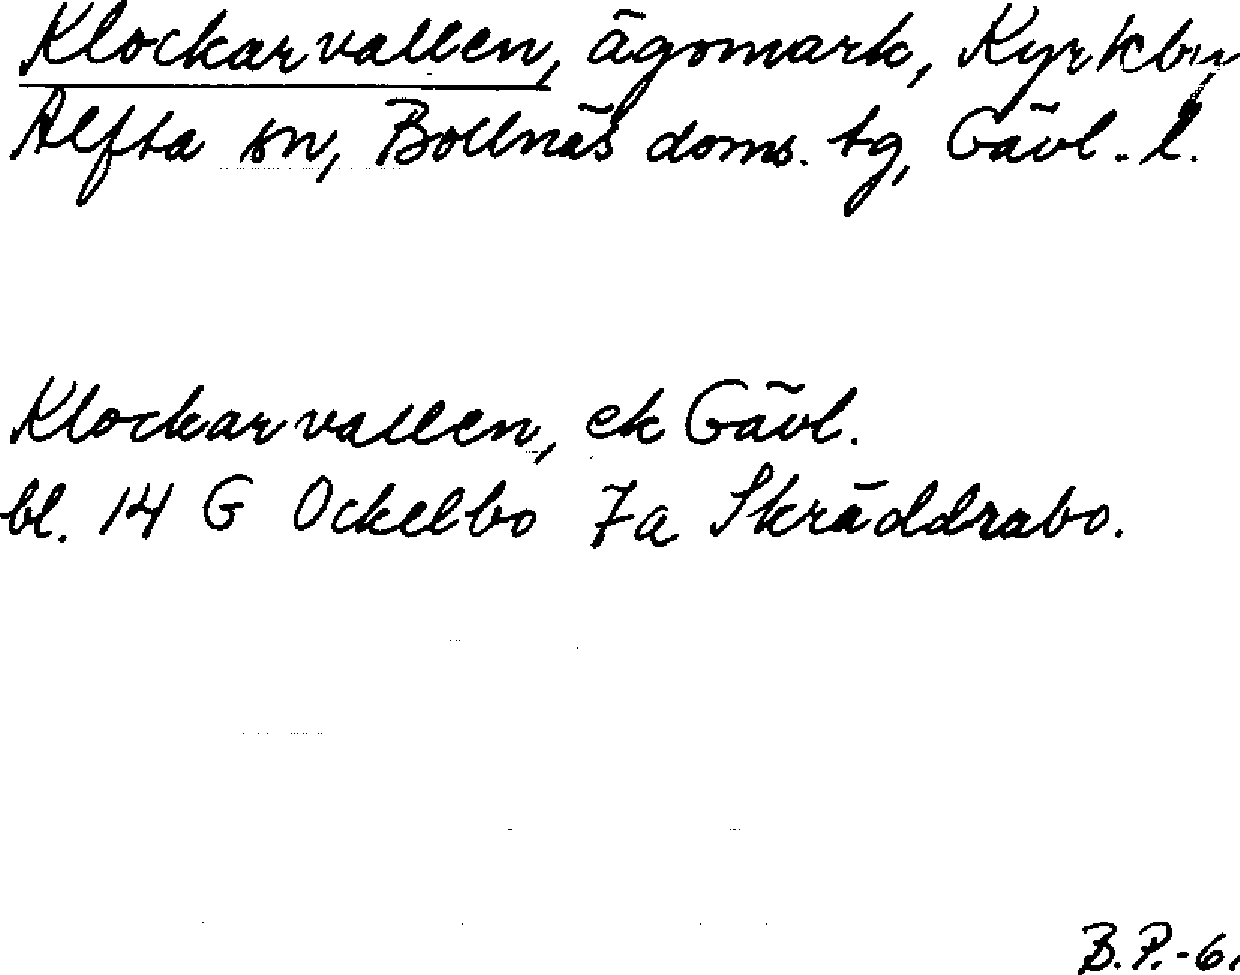 Klockarvallen, ägomark, Kyrkby,
Alfta sn, Bollnäs doms. tg, Gävl. l.
Klockarvallen, ek Gävl.
bl. 14 G Ockelbo 7a Skräddrabo.
B.P.-6